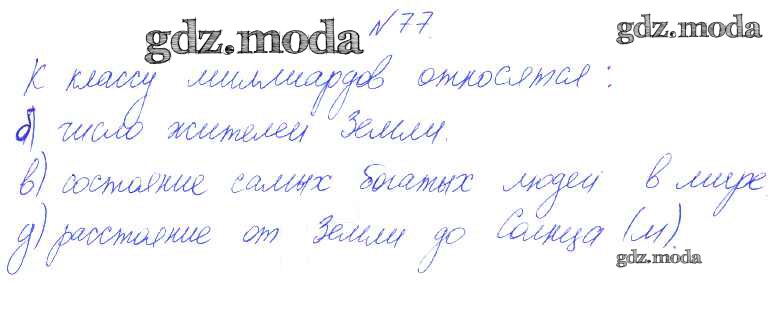 №77.
gdz.moda gdz.moda
К классу миллиардов относятся:
б) число жителей Земли.
в) состояние самых богатых людей в мире,
д) расстояние от Земли до Солнца (м).
gdz.moda